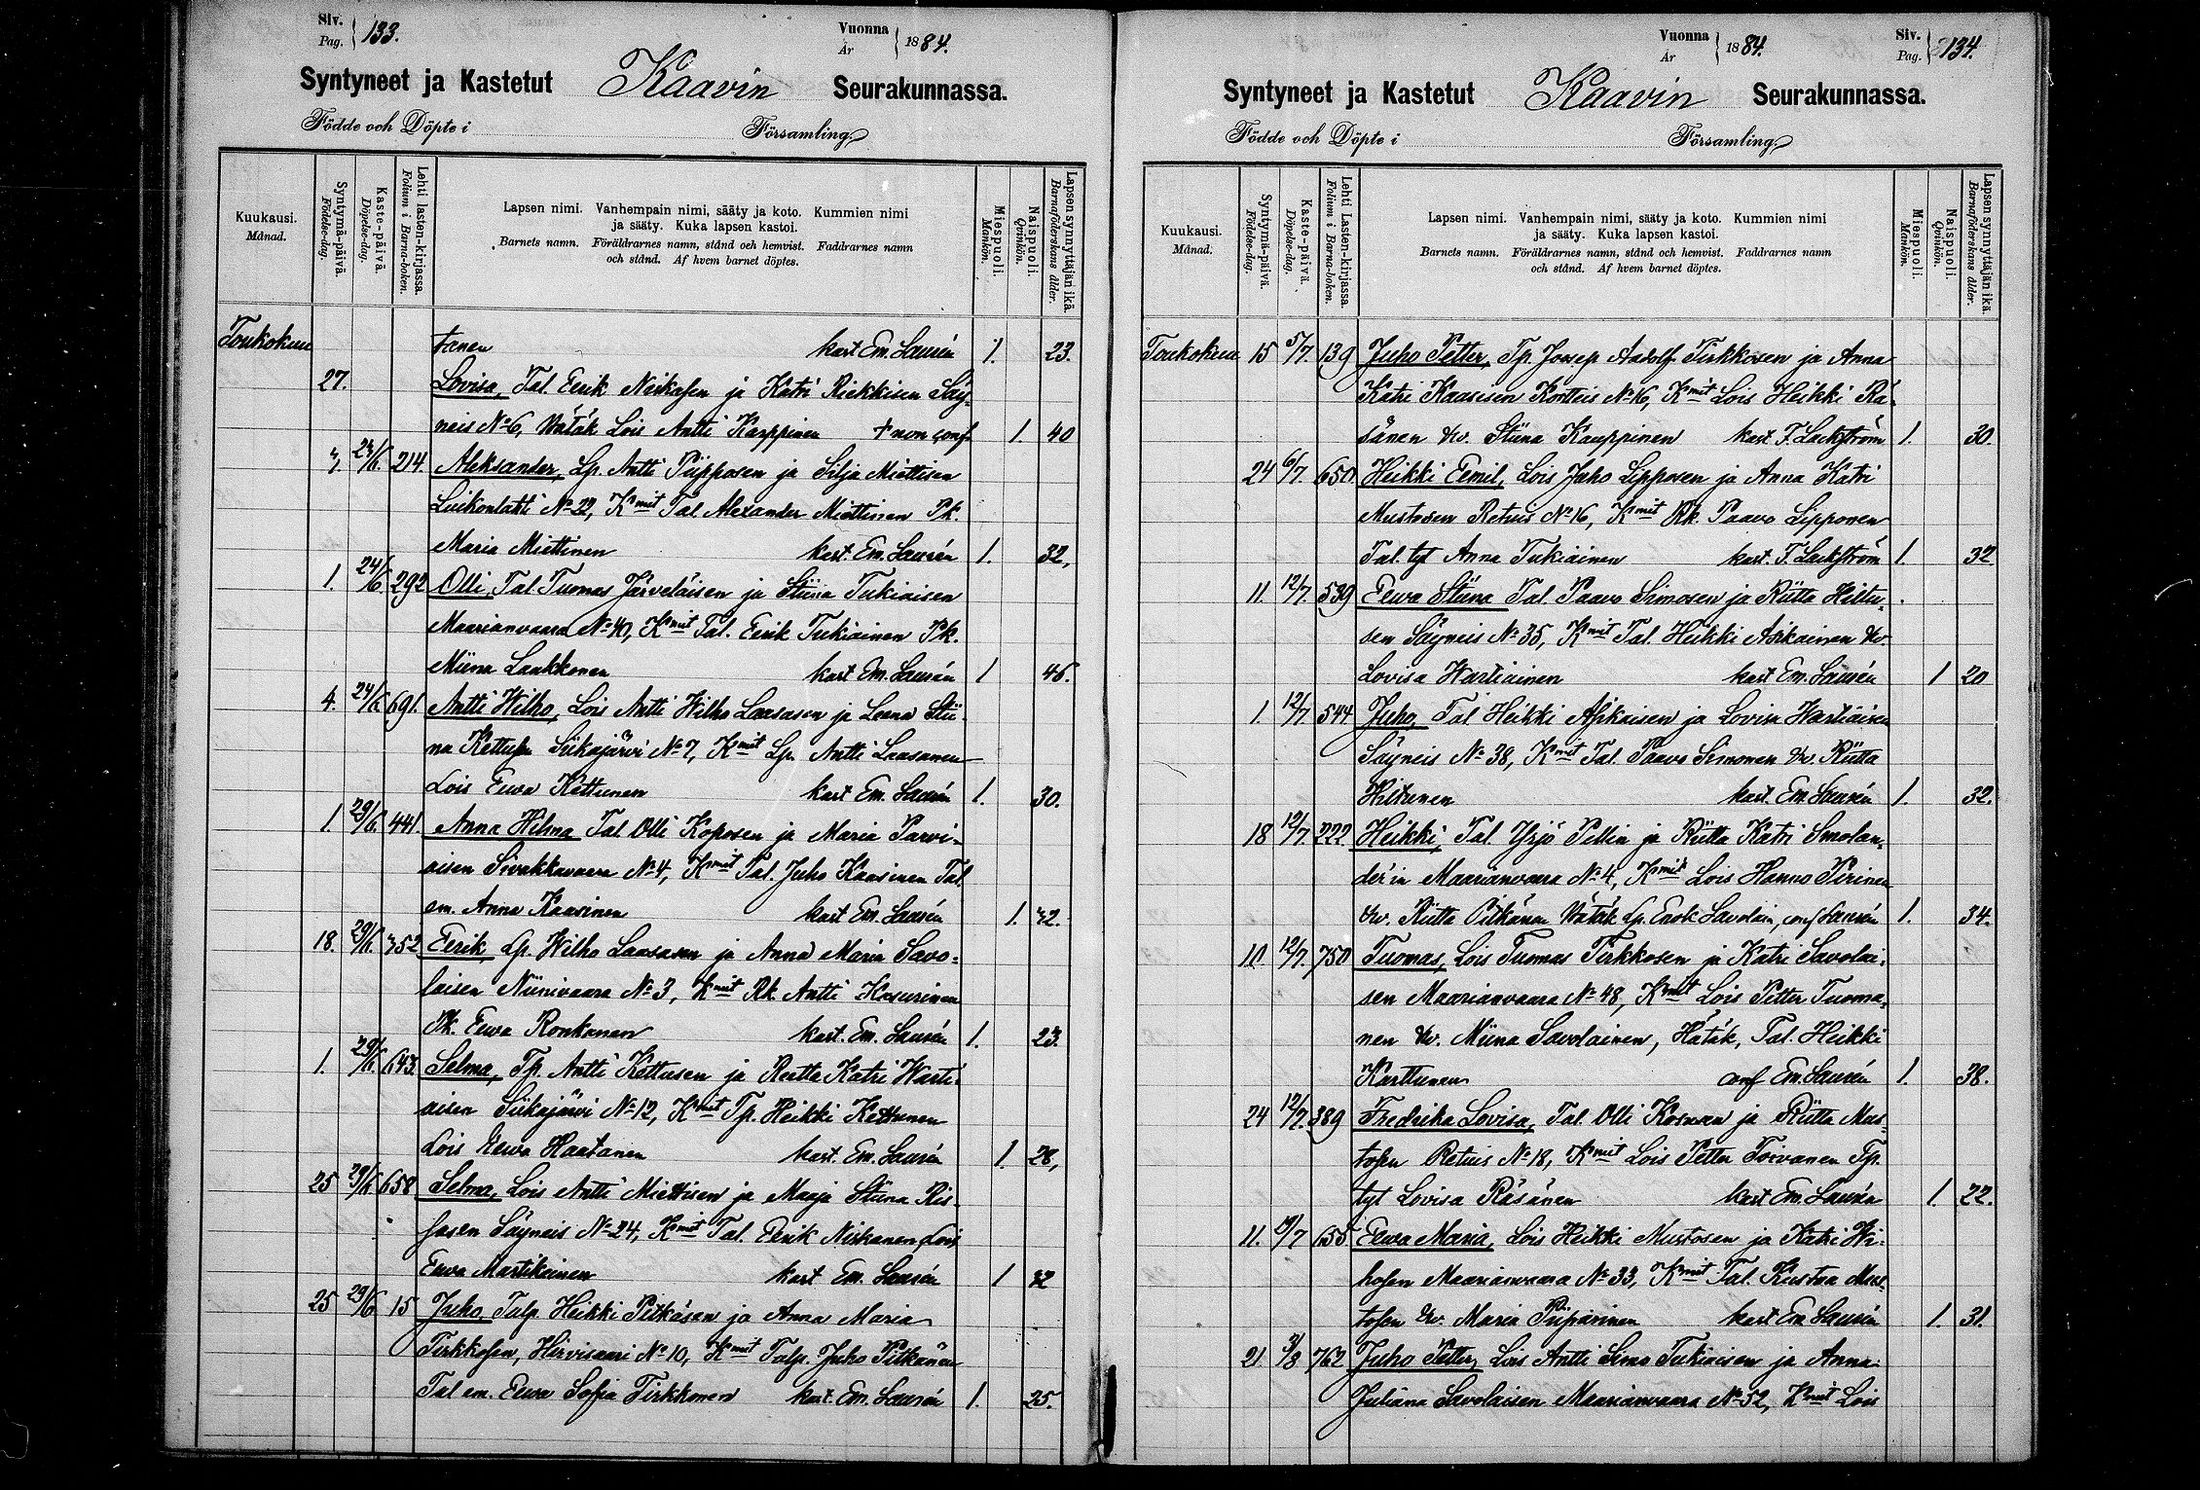 Siv. Pag. 133. Vuonna År 1884.
Syntyneet ja Kastetut Kaavin Seurakunnassa.
Födde och Döpte i Församling
Kuukausi. Månad.
Syntymä-päivä. Födelse-dag.
Kaste-päivä. Döpelse-dag.
Lehti lasten-kirjassa. Folium i Barna-boken.
Lapsen nimi. Vanhempain nimi, sääty ja koto. Kummien nimi
ja sääty. Kuka lapsen kastoi.
Barnets namn. Föräldrarnes namn, stånd och hemvist. Faddrarnes namn
och stånd. Af hvem barnet döptes.
Miespuoli. Mankön.
Naispuoli. Qvinkön.
Lapsen synnyttäjän ikä. Barnaföderskans ålder.
Toukokuu tanen kast Em. Laurén 1. 23.
27. Lovisa, Tal. Eerik Niskasen ja Katri Riekkisen Säy-
neis No 6, Hätäk Lois Antti Karppinen † non conf. 1. 40
7. 24/6. 214 Aleksander, Lp. Antti Piipposen ja Silja Miettisen
Luikonlahti No 22, Kmit Tal Alexander Miettinen Pk.
Maria Miettinen kast. Em. Laurén 1. 32,
1. 24/6. 292 Olli, Tal. Tuomas Järveläisen ja Stiina Tukiaisen
Maarianvaara No 40, Kmit Tal. Eerik Tukiainen Pk.
Miina Laakkonen kast Em. Laurén 1 46.
4. 24/6 691. Antti Wilho, Lois Antti Wilho Laasasen ja Leena Stii-
na Kettusen Siikajärvi No 7, Kmit Lp. Antti Laasanen
Lois Eewa Kettunen kast Em. Laurén 1. 30.
1. 29/6. 441. Anna Hilma Tal. Olli Koposen ja Maria Parvi-
aisen Sivakkavaara No 4, Kmit Tal. Juho Kaasinen Tal.
em. Anna Kaasinen kast Em. Laurén 1. 42.
18. 29/6. 352 Eerik, Lp. Wilho Laasasen ja Anna Maria Savo-
laisen Niinivaara No 3, Kmit Rk. Antti Kosunen
Pk. Eewa Ronkanen kast. Em. Laurén 1. 23.
1. 29/6. 643. Selma, Tp. Antti Kettusen ja Reetta Katri Warti-
aisen Siikajärvi No 12, Kmit Tp. Heikki Kettunen
Lois Eewa Haatanen kast. Em. Laurén 1. 28,
25 29/6 658 Selma, Lois Antti Miettisen ja Maija Stiina Ris-
sasen Säyneis No 24, Kmit Tal. Eerik Niskanen Lois
Eewa Martikainen kast Em. Laurén 1 42
25 29/6 15 Juho, Talp. Heikki Pitkäsen ja Anna Maria
Tirkkosen, Hirvisaari No 10, Kmit Talp. Juho Pitkänen
Tal em. Eewa Sofia Tirkkonen kast. Em. Laurén 1. 25.
Vuonna År 1884. Siv. Pag. 134.
Syntyneet ja Kastetut Kaavin Seurakunnassa.
Födde och Döpte i Församling
Kuukausi. Månad.
Syntymä-päivä. Födelse-dag.
Kaste-päivä. Döpelse-dag.
Lehti Lasten-kirjassa. Folium i Barna-boken.
Lapsen nimi. Vanhempain nimi, sääty ja koto. Kummien nimi
ja sääty. Kuka lapsen kastoi.
Barnets namn. Föräldrarnes namn, stånd och hemvist. Faddrarnes namn
och stånd. Af hvem barnet döptes.
Miespuoli. Mankön.
Naispuoli. Qvinkön.
Lapsen synnyttäjän ikä. Barnaföderskans ålder.
Toukokuu 15 5/7. 139 Juho Petter, Tp. Joosep Aadolf Tirkkosen ja Anna
Katri Kaasisen Kortteis No 16, Kmit Lois Heikki Rä-
sänen Kv. Stiina Kauppinen kast. F. Lackström 1. 30.
24 6/7. 650 Heikki Eemil, Lois Juho Lipposen ja Anna Katri
Mustosen Retuis No 16, Kmit Rk. Paavo Lipponen
Tal. tyt Anna Tukiainen kast. F. Lackström 1. 32
11. 12/7. 539 Eewa Stiina Tal. Paavo Simosen ja Riitta Hiltu-
sen Säyneis No 35, Kmit Tal. Heikki Asikainen Kv.
Lovisa Wartiainen kast Em. Laurén 1 20
1. 12/7 544 Juho, Tal Heikki Asikaisen ja Lovisa Wartiaisen
Säyneis No 38, Kmit Tal. Paavo Simonen Kv. Riitta
Hiltunen kast. Em. Laurén 1. 32.
18 12/7. 222 Heikki, Tal. Yrjö Pellin ja Riitta Katri Smolan-
der'in Maarianvaara No 4, Kmit Lois Hannu Piirinen
Kv. Riitta Pitkänen Hätäk Lp. Enok Savolain, conf Laurén 1. 34.
10 12/7. 750 Tuomas, Lois Tuomas Tirkkosen ja Katri Savolai-
sen Maarianvaara No 48, Kmit Lois Petter Tuoma-
nen Kv. Miina Savolainen, Hätäk, Tal. Heikki
Karttunen conf Em. Laurén 1. 38.
24 12/7. 389 Fredrika Lovisa, Tal. Olli Kosusen ja Riitta Mus-
tosen Retuis No 18, Kmit Lois Petter Toivanen Tp.
tyt Lovisa Räsänen kast Em. Laurén 1. 22.
11. 655 Eewa Maria, Lois Heikki Mustosen ja Katri Hi-
hosen Maarianvaara No 33, Kmit Tal. Kustaa Mus-
tosen Kv. Maria Piiparinen kast Em Laurén 1. 31.
21 3/8 762 Juho Petter, Lois Antti Simo Tukiaisen ja Anna
Juliana Savolaisen Maarianvaara No 52, Kmit Lois